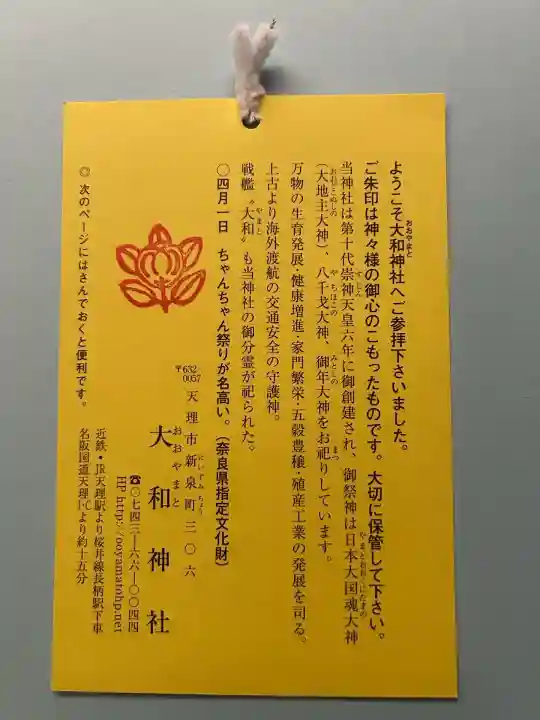 ようこそ大和神社へご参拝下さいました。
ご朱印は神々様の御心のこもったものです。大切に保管して下さい。
当神社は第十代崇神天皇六年に御創建され、御祭神は日本大国魂大神
(大地主大神)、八千戈大神、御年大神をお祀りしています。
万物の生育発展・健康増進・家門繁栄・五穀豊穣・殖産工業の発展を司る。
上古より海外渡航の交通安全の守護神。
戦艦〝大和〟も当神社の御分霊が祀られた。
〇四月一日 ちゃんちゃん祭りが名高い。(奈良県指定文化財)
〒632-0057 天理市新泉町三〇六
大和神社
おおやまと
☎〇七四三―六六―〇〇四四
HP http://ooyamatohp.net
近鉄・JR天理駅より桜井線長柄駅下車
名阪国道天理I・Cより約十五分
◎ 次のページにはさんでおくと便利です。